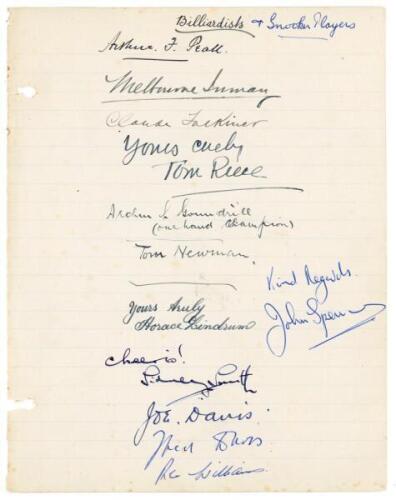 Billiardists & Snooker Players
Arthur. F. Peall.
Melbourne Inman
Claude Falkiner
Yours cuely
Tom Reece
Arthur L Goundrill
(one hand Champion)
Tom Newman.
Kind Regards.
John Spencer
Yours truly
Horace Lindrum
Cheerio!
Sidney Smith
JOE. DAVIS.
Fred Davis
Rex Williams